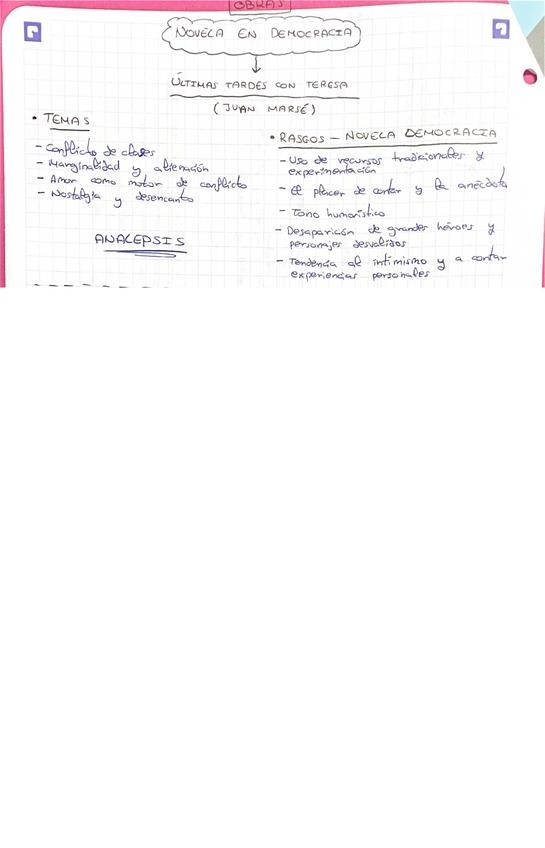 OBRAS
NOVELA EN DEMOCRACIA
ÚLTIMAS TARDES CON TERESA
(JUAN MARSÉ)
• TEMAS
- Conflicto de clases
- Marginalidad y alienación
- Amor como motor de conflicto
- Nostalgia y desencanto
ANALEPSIS
• RASGOS – NOVELA DEMOCRACIA
- Uso de recursos tradicionales y
experimentación
- El placer de contar y la anécdota
- Tono humorístico
- Desaparición de grandes héroes y
personajes desvalidos
- Tendencia al intimismo y a contar
experiencias personales